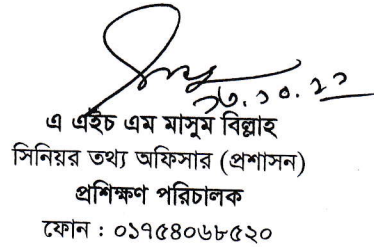 এ এইচ এম মাসুম বিল্লাহ
সিনিয়র তথ্য অফিসার (প্রশাসন)
প্রশিক্ষণ পরিচালক
ফোন : ০১৭৫৪০৬৮৫২০